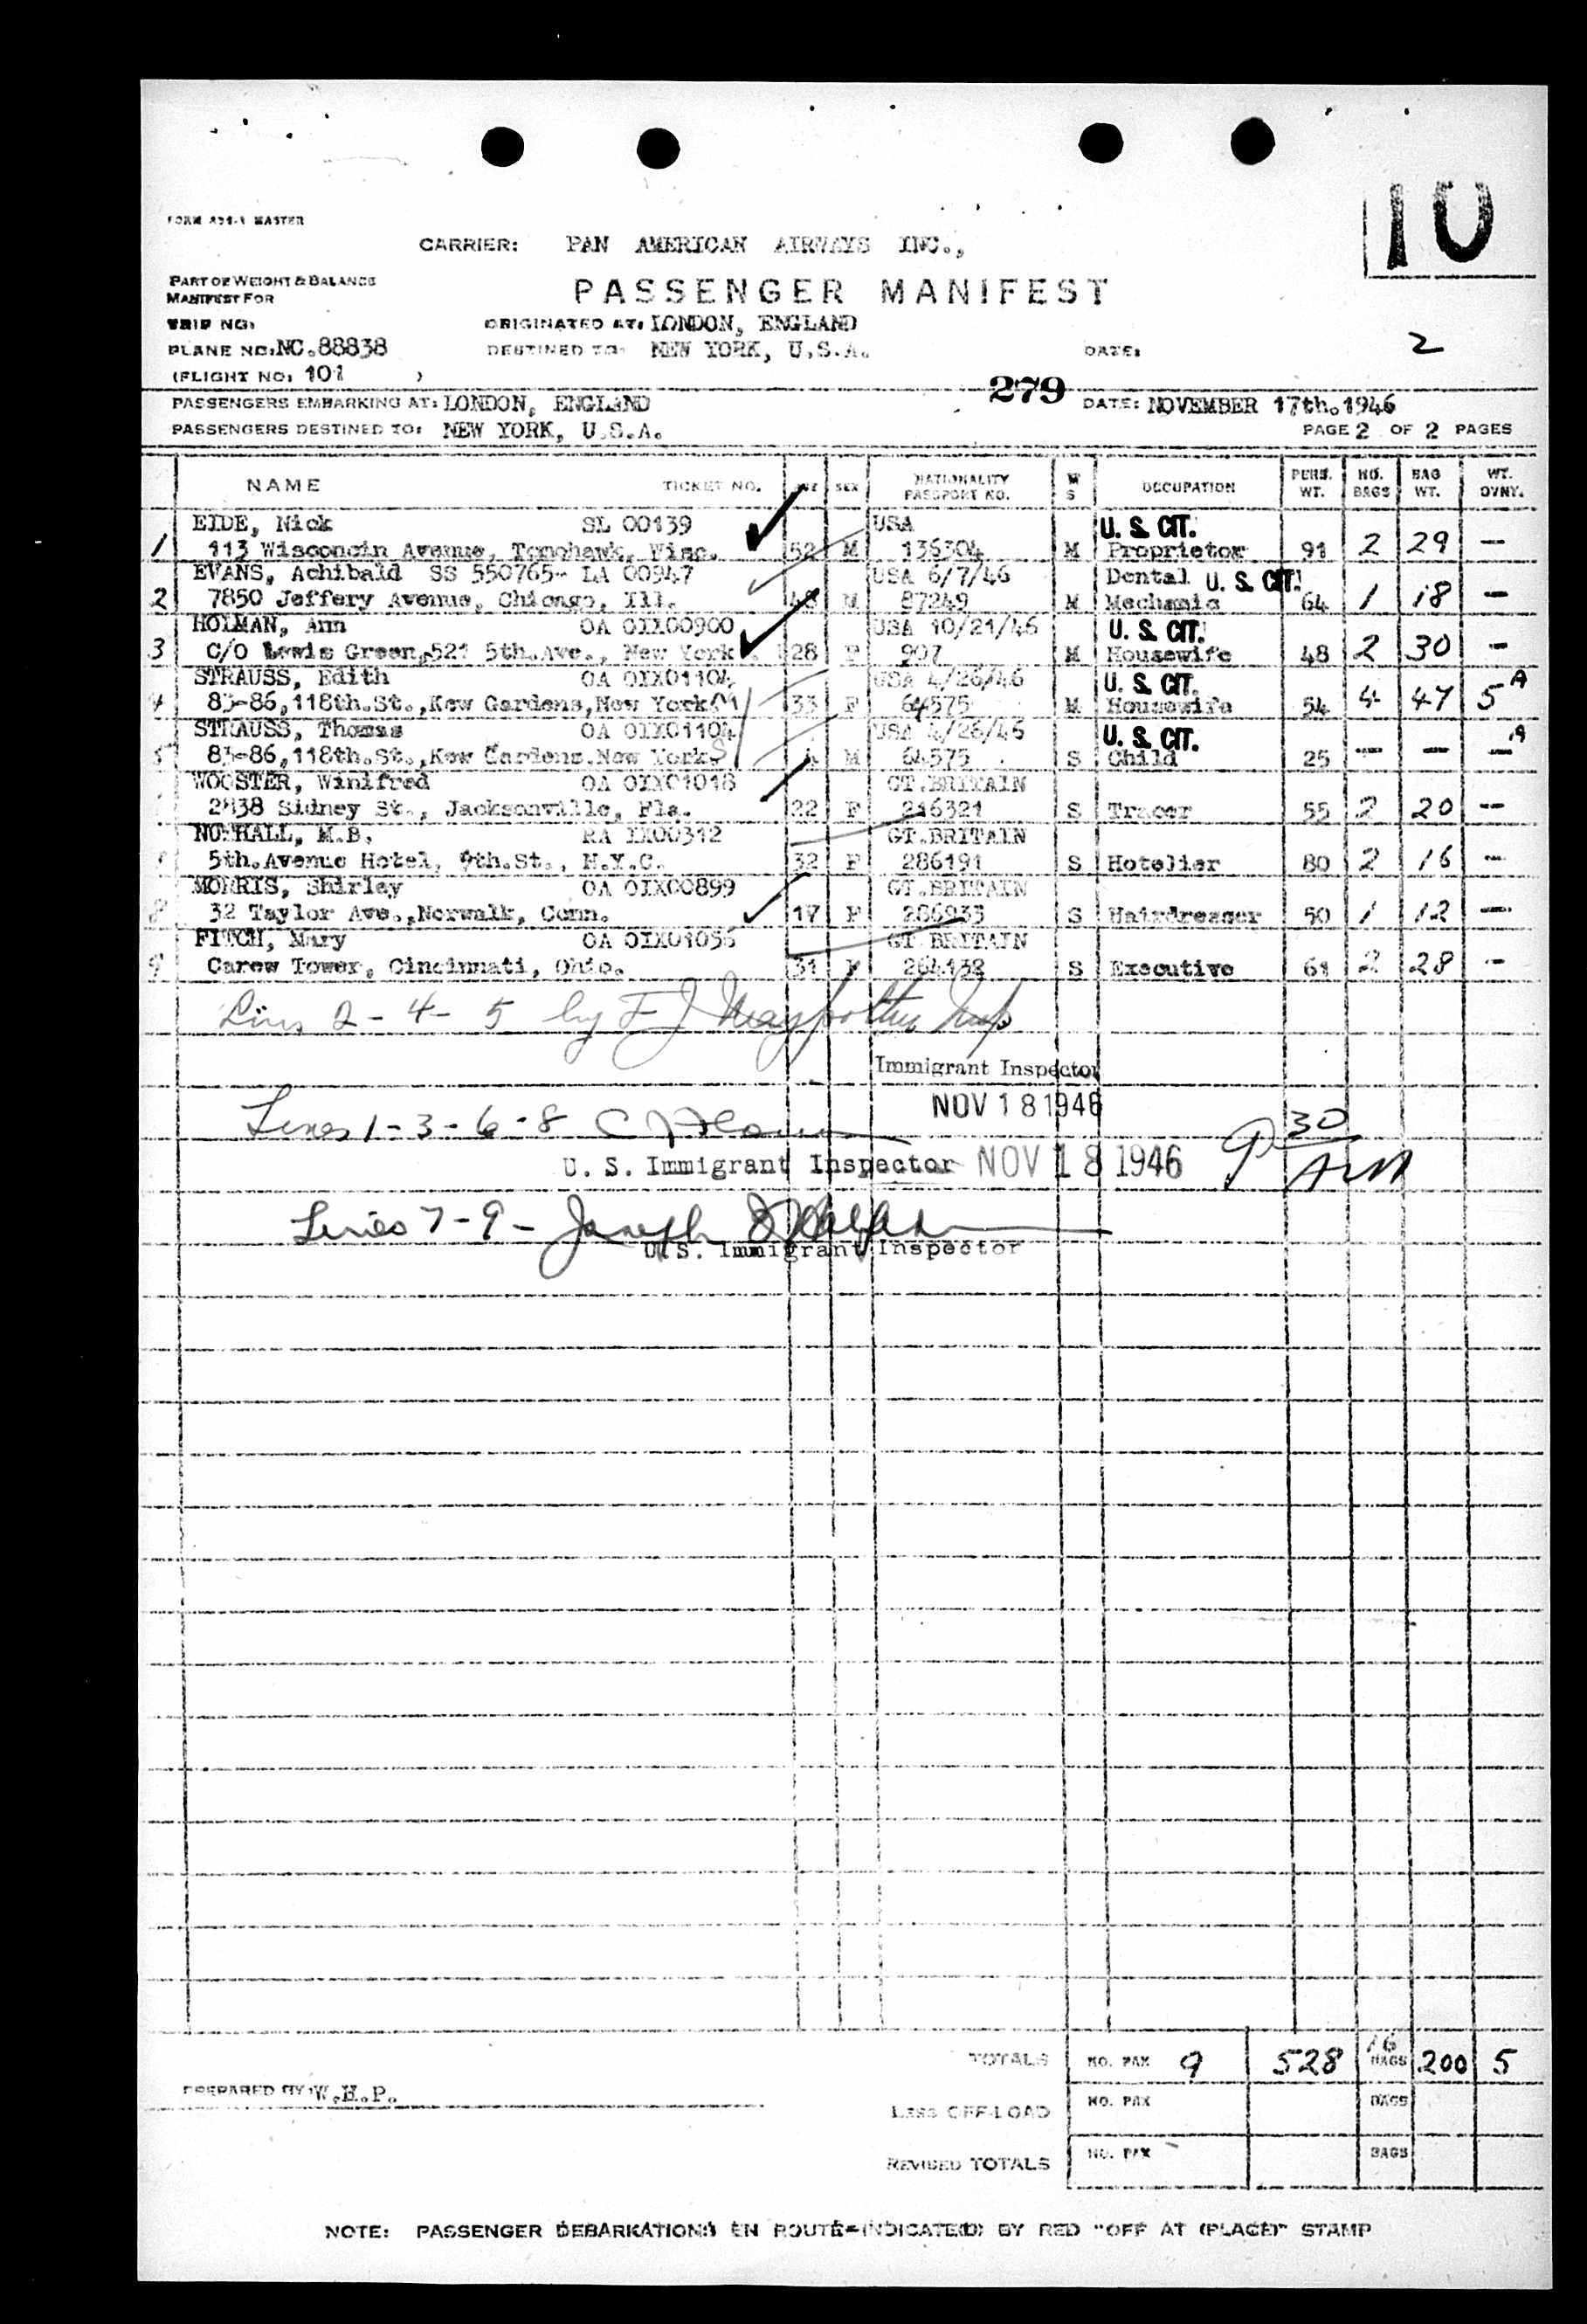 10
FORM 494-1 MASTER
CARRIER: PAN AMERICAN AIRWAYS INC.,
PART OF WEIGHT & BALANCE
MANIFEST FOR
PASSENGER MANIFEST
TRIP NO:
ORIGINATED AT: LONDON, ENGLAND
PLANE NO: NC.88838
DESTINED TO: NEW YORK, U.S.A.
DATE:
2
(FLIGHT NO: 101 )
279
PASSENGERS EMBARKING AT: LONDON, ENGLAND
DATE: NOVEMBER 17th.1946
PASSENGERS DESTINED TO: NEW YORK, U.S.A.
PAGE 2 OF 2 PAGES
NAME TICKET NO. AGE SEX NATIONALITY PASSPORT NO. M S OCCUPATION PERS. WT. NO. BAGS BAG WT. WT. OVNT.
EIDE, Nick SL 00139 USA U. S. CIT.
1 113 Wisconcin Avenue, Tomohawk, Wisc. 52 M 136304 M Proprietor 91 2 29 —
EVANS, Achibald SS 550765- LA 00947 USA 6/7/46 Dental U. S. CIT.
2 7850 Jeffery Avenue, Chicago, Ill. M 87249 M Mechanic 64 1 18 —
HOLMAN, Ann OA OIX00900 USA 10/21/46 U. S. CIT.
3 C/O Lewis Green, 521 5th.Ave., New York 28 F 907 M Housewife 48 2 30 —
STRAUSS, Edith OA OIX01104 USA 4/26/46 U. S. CIT.
4 83-86,118th.St.,Kew Gardens,New York 33 F 64575 M Housewife 54 4 47 5 A
STRAUSS, Thomas OA OIX01104 USA 4/26/46 U. S. CIT.
5 83-86,118th.St.,Kew Gardens,New York 4 M 64575 S Child 25 — — — A
WOOSTER, Winifred OA OIX01018 GT.BRITAIN
2838 Sidney St., Jacksonville, Fla. 22 F 216321 S Tracer 55 2 20 —
NUTHALL, M.B. RA IX00312 GT.BRITAIN
5th.Avenue Hotel, 9th.St., N.Y.C. 32 F 286191 S Hotelier 80 2 16 —
MORRIS, Shirley OA OIX00899 GT.BRITAIN
8 32 Taylor Ave.,Norwalk, Conn. 17 F 286933 S Hairdresser 50 1 12 —
FITCH, Mary OA OIX01056 GT BRITAIN
9 Carew Tower, Cincinnati, Ohio. 31 F 264132 S Executive 61 2 28 —
Lines 2 - 4 - 5 by F J
Immigrant Inspector
NOV 18 1946
Lines 1 - 3 - 6 - 8
U. S. Immigrant Inspector NOV 18 1946 9 30 AM
Lines 7 - 9 - Joseph
U.S. Immigrant Inspector
TOTALS NO. PAX 9 528 16 BAGS 200 5
PREPARED BY: W.H.P.
LESS OFF-LOAD NO. PAX BAGS
REVISED TOTALS NO. PAX BAGS
NOTE: PASSENGER DEBARKATIONS EN ROUTE INDICATED BY RED "OFF AT (PLACE)" STAMP